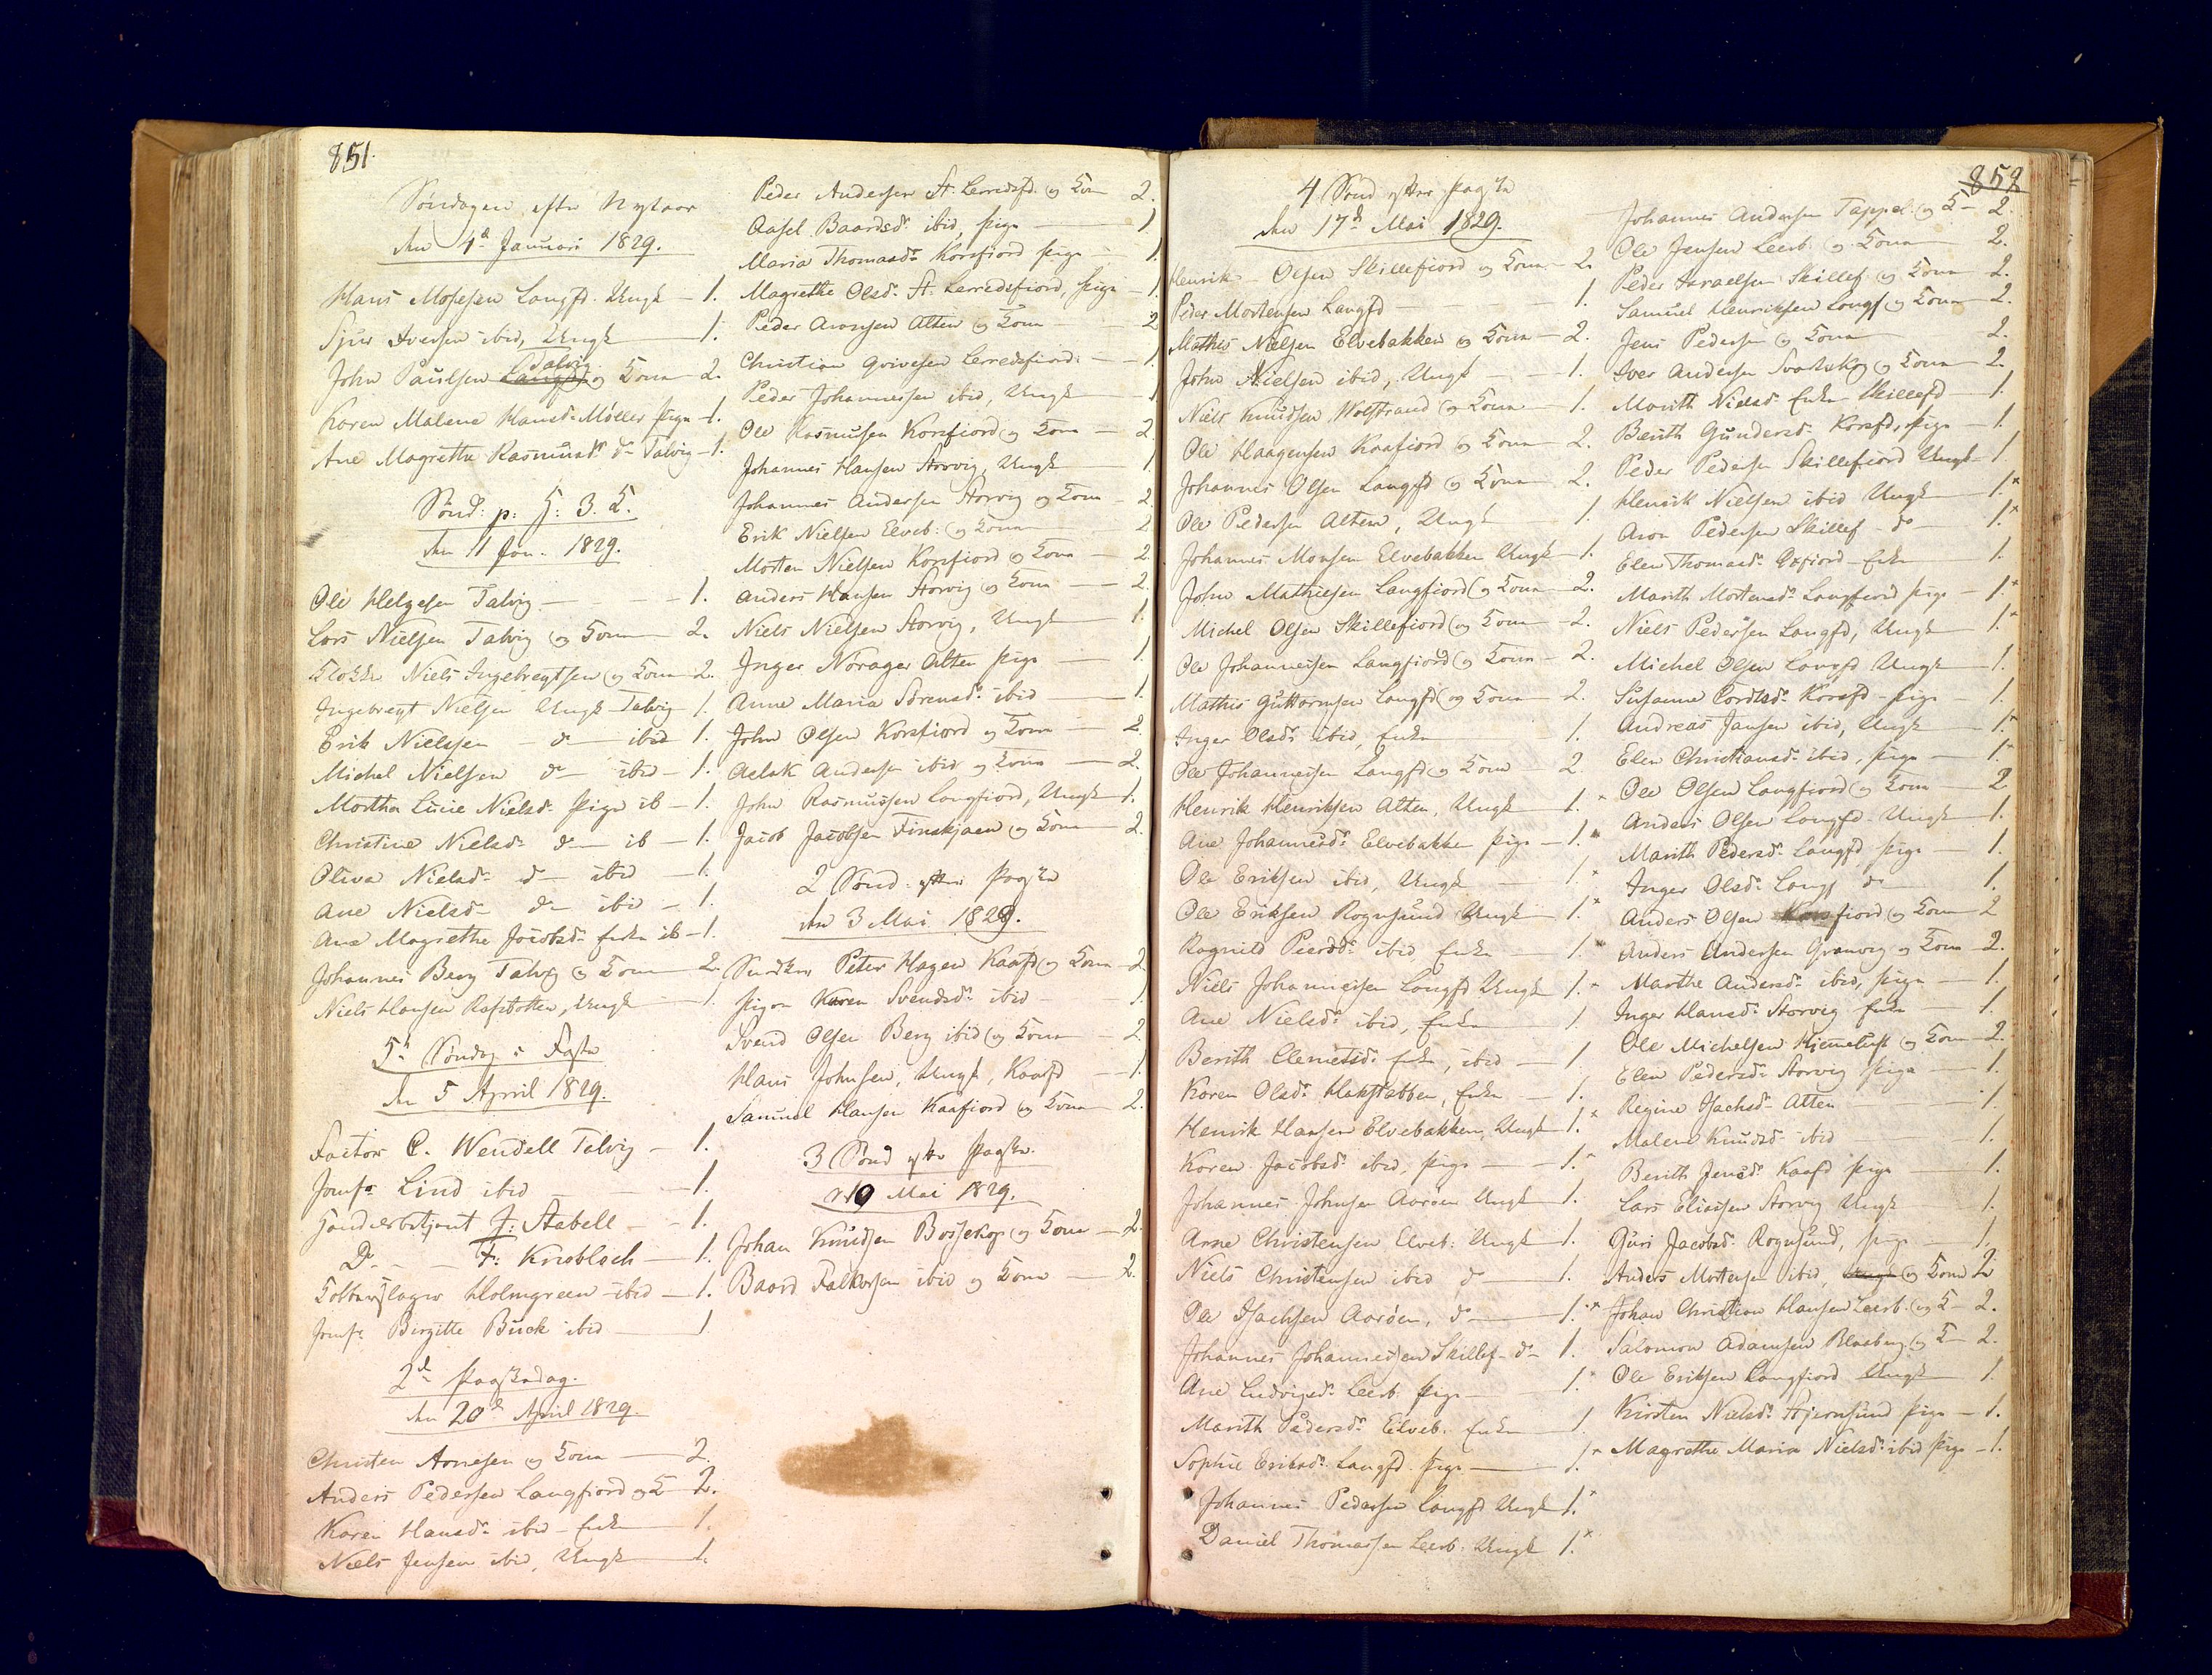 851.
Søndagen efter Nytaar
den 4de Januari 1829.
Hans Mosesen Langfd. Ungk – 1.
Sjur Iversen ibid, Ungk 1.
Talvig
John Paulsen Langfd og Kone – 2.
Karen Malene Hansdr Møller pige – 1.
Ane Magrethe Rasmusdr do Talvig – 1.
Sønd: p: H: 3. K.
den 11 Jan. 1829.
Ole Helgesen Talvig – – – 1.
Lars Nielsen Talvig og Kone – 2.
Klokker Niels Ingebregtsen og Kone 2.
Ingebregt Nielsen Ungk Talvig 1.
Erik Nielssen – do – ibid 1.
Michel Nielsen do – ibid – 1.
Martha Lucie Nielsdr pige ib – 1.
Christine Nielsdr do – ib – 1.
Oliva Nielsdr – do – ibid – 1.
Ane Nielsdr – do – ibid – 1.
Ane Magrethe Jacobsdr Enke ib – 1.
Johannes Berg Talvig og Kone – 2.
Niels Hansen Rafsbotten, Ungk – 1.
5te Søndag i Faste
den 5 April 1829.
Factor C. Wendell Talvig – 1.
Jomfr Lind ibid – 1.
Handelsbetjent J: Aabell – – 1.
Do – – F: Knobloch – 1.
Kobberslager Holmgreen ibid – 1.
Jomfr Birgitte Buck ibid – 1
2den Paaskedag.
den 20de April 1829.
Christen Arnesen og Kone – 2.
Anders Pedersen Langfiord og K – 2.
Karen Hansdr ibid – Enke – 1.
Niels Jensen ibid, Ungk – 1.
Peder Andersen St. Lerredsfd. og Kone 2.
Aasel Baardsdr ibid, pige – 1
Maria Thomasdr Korsfiord pige – 1.
Magrethe Olsdr St: Lerredsfiord, pige – 1.
Peder Aronsen Alten og Kone – 2
Christian Grivesen Lerredsfiord – – 1.
Peder Johannessen ibid, Ungk 1
Ole Rasmusen Korsfiord og Kone – 2.
Johannes Hansen Storvig, Ungk – 1
Johannes Andersen Storvig og Kone – 2.
Erik Nielsen Elveb. og Kone – 2
Morten Nielsen Korsfiord og Kone – 2.
Anders Hansen Storvig og Kone – 2.
Niels Nielsen Storvig, Ungk – 1.
Inger Norager Alten pige – 1.
Anne Maria Sørensdr ibid – 1.
John Olsen Korsfiord og Kone – 2.
Aslak Andersen ibid og Kone – 2.
John Rasmussen Langfiord, Ungk 1.
Jacob Jacobsen Finskjaen og Kone 2.
2 Sønd. efter Paaske
den 3 Mai 1829.
Peter Hagen Kaafd og Kone – 2
Pigen Karen Svendsdr ibid – 1
Svend Olsen Berg ibid og Kone – 2.
Hans Johnsen, Ungk, Kaafd – 1.
Samuel Hansen Kaafiord og Kone 2.
3 Sønd efter Paaske.
d. 10 Mai 1829.
Johan Knudsen Bossekop og Kone – 2.
Baard Falkersen ibid og Kone – 2.
858
4 Sønd efter Paaske
den 17de Mai 1829.
Henrik Olsen Skillefiord og Kone – 2.
Peder Mortensen Langfd – – – 1.
Mathis Nielsen Elvebakken og Kone – 2.
John Nielsen ibid, Ungk – – 1.
Niels Knudsen Wolstrand og Kone – 1.
Ole Haagensen Kaafiord og Kone – 2.
Johannes Olsen Langfd og Kone – 2.
Ole Pedersen Alten, Ungk 1.
Johannes Monsen Elvebakken Ungk – 1.
John Mathiesen Langfiord og Kone – 2.
Michel Olsen Skillefiord og Kone – 2.
Ole Johannesen Langfiord og Kone – 2.
Mathis Guttormsen Langfd og Kone – 2.
Inger Olsdr ibid, Enke – 1.
Ole Johannesen Langfd og Kone – 2.
Henrik Henriksen Alten, Ungk – 1. *
Ane Johannesdr Elvebakken pige – 1. *
Ole Eriksen ibid, Ungk – 1. *
Ole Eriksen Rognsund Ungk – 1. *
Ragnild Peersdr ibid, Enke – 1. *
Niels Johannesen Langfd Ungk 1. *
Ane Nielsdr ibid, Enke – 1
Berith Clemetsdr Enke, ibid – 1
Karen Olsdr Hakstabben, Enke – 1.
Henrik Hansen Elvebakken, Ungk 1. *
Karen Jacobsdr ibid, pige – – 1. *
Johannes Johnsen Aarøen Ungk 1.
Arne Christensen Elveb. Ungk 1.
Niels Christensen ibid do 1.
Ole Isachsen Aarøen, do – 1. *
Johannes Johannessen Skillef. do – 1.
Ane Ludvigsdr Leerb. pige – 1. *
Marith Pedersdr Elveb. Enke 1
Sophie Eriksdr Langfd. pige – 1. *
Johannes Pedersen Langfd Ungk 1. *
Daniel Thomassen Leerb. Ungk 1. *
Johannes Andersen Tappel. og K – 2.
Ole Jensen Leerb. og Kone – 2.
Peder Israelsen Skillef. og Kone – 2.
Samuel Henriksen Langf og Kone – 2.
Jens Pedersen og Kone 2.
Iver Andersen Svartskog og Kone – 2.
Marith Nielsdr Enke Skillefd – 1.
Berith Gundersdr Korsfd, pige – 1.
Peder Pedersen Skillefiord Ungk 1.
Henrik Nielsen ibid Ungk 1. *
Aron Pedersen Skillef – do – 1. *
Elen Thomasdr Oxfiord – Enke 1.
Marith Mortensdr Langfiord pige – 1. *
Niels Pedersen Langfd, Ungk 1. *
Michel Olsen Langfd Ungk – 1.
Susanne Cordtsdr Korsfd – pige – 1.
Andreas Jansen ibid, Ungk – 1. *
Elen Christiansdr ibid, pige – 1. *
Ole Olsen Langfiord og Kone – 2
Anders Olsen Langfd. Ungk 1.
Marith Pedersdr Langfd pige – 1.
Inger Olsdr Langf do 1.
Anders Olsen Korsfiord og Kone 2
Anders Andersen Granvig og Kone – 2.
Marthe Andersdr ibid, pige – 1.
Inger Hansdr Storvig Enke – 1.
Ole Michelsen Hiemeluft og Kone – 2.
Elen Pedersdr Storvig pige – 1.
Regine Isachsdr Alten – 1.
Malene Knudsdr ibid – 1.
Berith Jensdr Kaafd pige – 1.
Lars Eliassen Storvig Ungk 1.
Guri Jacobsdr Rognsund, pige – 1.
Anders Mortensen ibid, Ungk og Kone 2
Johan Christian Hansen Leerb. og K – 2.
Salomon Adamsen og K – 2.
Ole Eriksen Langfiord Ungk 1.
Kirsten Nielsdr Stjernsund pige – 1.
Magrethe Maria Nielsdr ibid pige – 1.